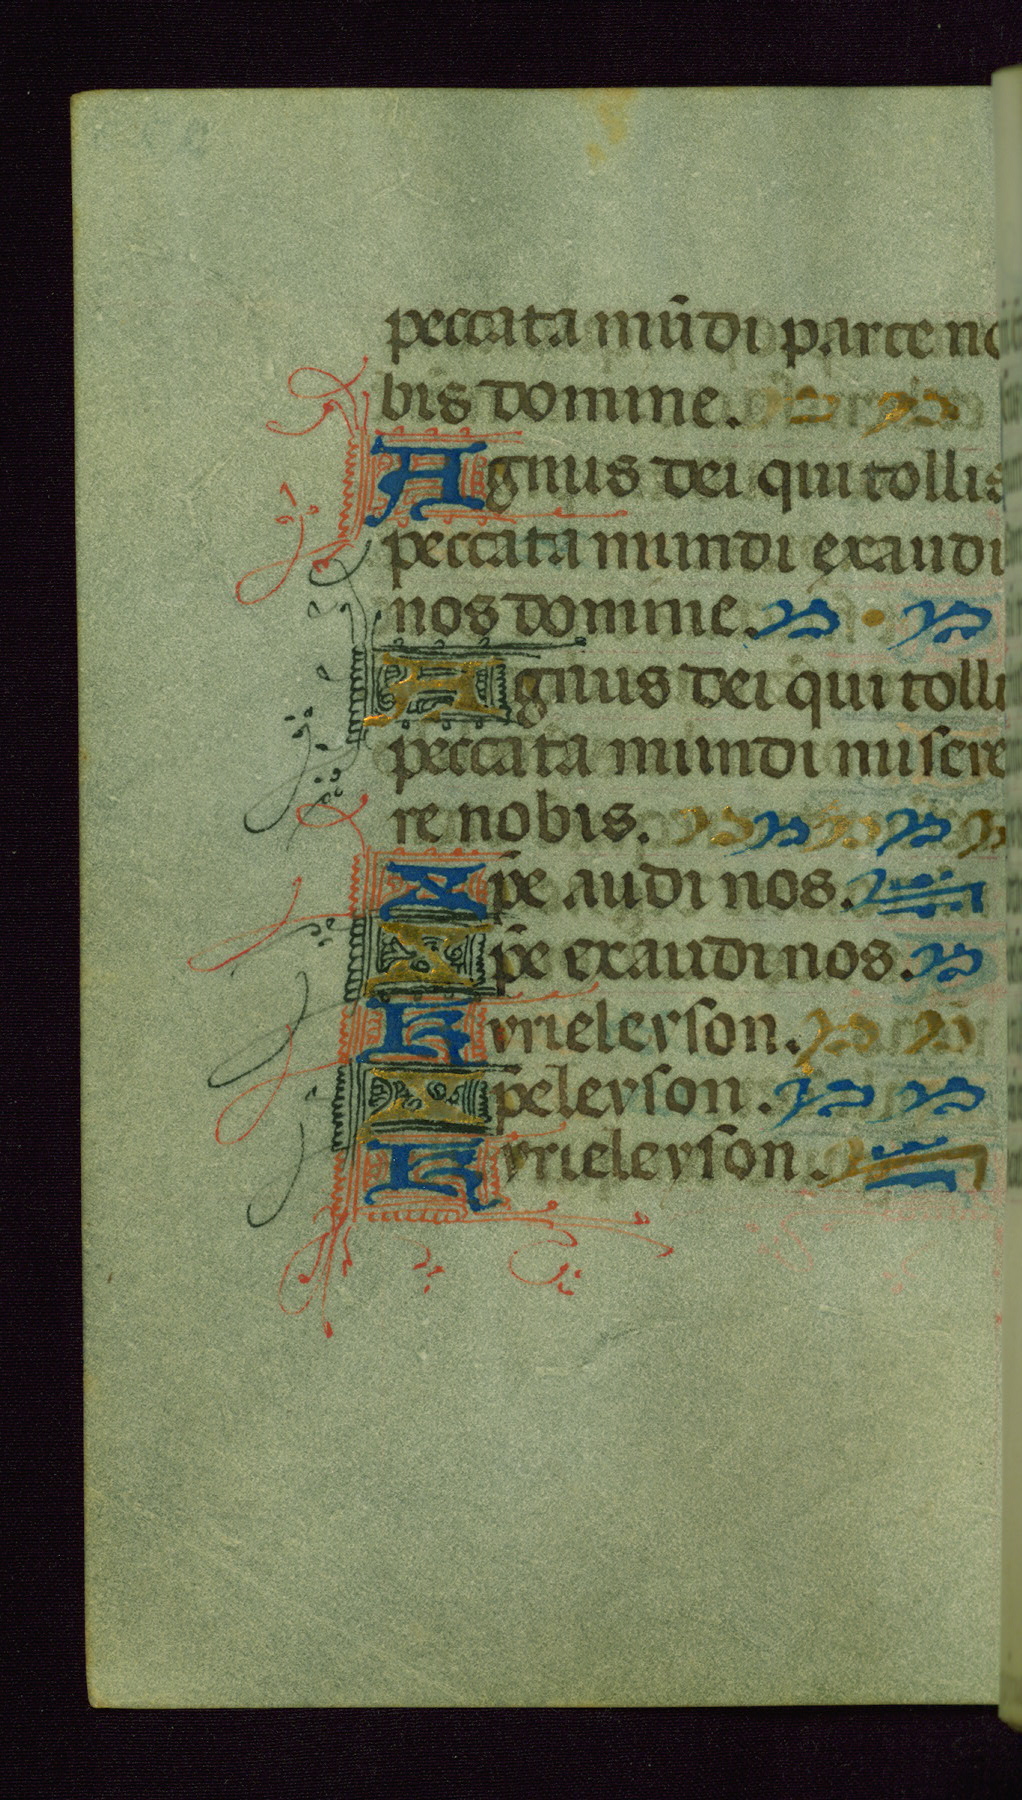 peccata mūdi parce no
bis domine.
Agnus dei qui tollis
peccata mundi exaudi
nos domine.
Agnus dei qui tolli
peccata mundi miſere
re nobis.
Xp̄e audi nos.
Xp̄e exaudi nos.
kyrieleyſon.
Xp̄eleyſon.
kyrieleyſon.